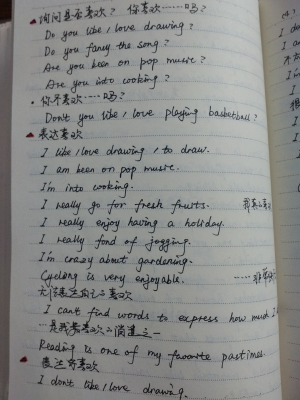 询问是否喜欢？ 你喜欢……吗？
Do you like / love drawing?
Do you fancy the song?
Are you been on pop music?
Are you into cooking?
你不喜欢……吗？
Don't you like / love playing basketball?
表达喜欢
I like / love drawing / to draw.
I am been on pop music.
I'm into cooking.
I really go for fresh fruits.
I really enjoy having a holiday.
I really fond of jogging.
I'm crazy about gardening.
Cycling is very enjoyable.
无法表达自己之喜欢
I can't find words to express how much I
…是我最喜欢之消遣之一
Reading is one of my favorite pastimes.
表达不喜欢
I don't like / love drawing.